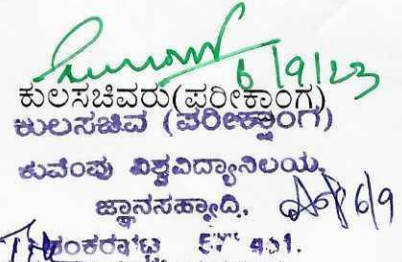 6/9/23
ಕುಲಸಚಿವರು(ಪರೀಕ್ಷಾಂಗ)
ಕುಲಸಚಿವ (ಪರೀಕ್ಷಾಂಗ)
ಕುವೆಂಪು ವಿಶ್ವವಿದ್ಯಾನಿಲಯ,
ಜ್ಞಾನಸಹ್ಯಾದ್ರಿ, 6/9
ಶಂಕರಘಟ್ಟ 451.